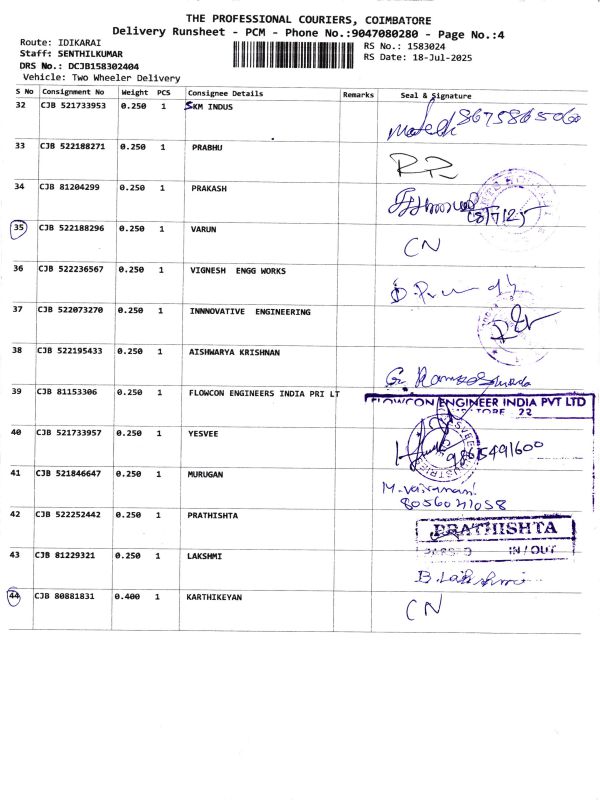 THE PROFESSIONAL COURIERS, COIMBATORE
Delivery Runsheet - PCM - Phone No.:9047080280 - Page No.:4
Route: IDIKARAI
RS No.: 1583024
Staff: SENTHILKUMAR
RS Date: 18-Jul-2025
DRS No.: DCJB158302404
Vehicle: Two Wheeler Delivery
S No Consignment No Weight PCS Consignee Details Remarks Seal & Signature
32 CJB 521733953 0.250 1 SKM INDUS
8675865060
33 CJB 522188271 0.250 1 PRABHU
34 CJB 81204299 0.250 1 PRAKASH
18/7/25
35 CJB 522188296 0.250 1 VARUN
CN
36 CJB 522236567 0.250 1 VIGNESH ENGG WORKS
37 CJB 522073270 0.250 1 INNNOVATIVE ENGINEERING
38 CJB 522195433 0.250 1 AISHWARYA KRISHNAN
39 CJB 81153306 0.250 1 FLOWCON ENGINEERS INDIA PRI LT
FLOWCON ENGINEER INDIA PVT LTD
22
40 CJB 521733957 0.250 1 YESVEE
9865491600
41 CJB 521846647 0.250 1 MURUGAN
8056021058
42 CJB 522252442 0.250 1 PRATHISHTA
PRATHISHTA
PASSED IN/OUT
43 CJB 81229321 0.250 1 LAKSHMI
B. Lakshmi
44 CJB 80881831 0.400 1 KARTHIKEYAN
CN